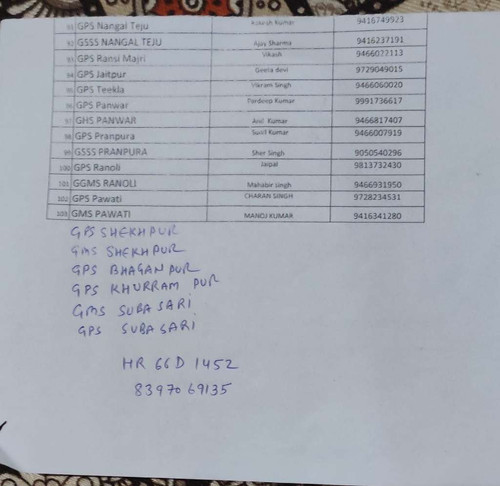 91 GPS Nangal Teju Rakesh Kumar 9416749923
92 GSSS NANGAL TEJU Ajay Sharma 9416237191
93 GPS Ransi Majri Vikash 9466077113
94 GPS Jaitpur Geeta devi 9729049015
95 GPS Teekla Vikram Singh 9466060020
96 GPS Panwar Pardeep Kumar 9991736617
97 GHS PANWAR Anil Kumar 9466817407
98 GPS Pranpura Sunil Kumar 9466007919
99 GSSS PRANPURA Sher Singh 9050540296
100 GPS Ranoli Jaipal 9813732430
101 GGMS RANOLI Mahabir singh 9466931950
102 GPS Pawati CHARAN SINGH 9728234531
103 GMS PAWATI MANOJ KUMAR 9416341280
GPS SHEKHPUR
GMS SHEKHPUR
GPS BHAGANPUR
GPS KHURRAM PUR
GMS SUBA SARI
GPS SUBA SARI
HR 66D 1452
8397069135